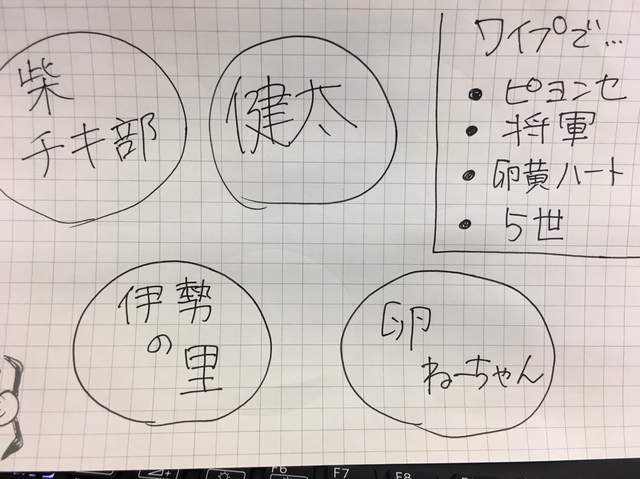 柴
チキ部
健太
ワイプで…
・ピヨンセ
・将軍
・卵黄ハート
・5世
伊勢
の
里
卵
ねーちゃん
F6
F7
F8